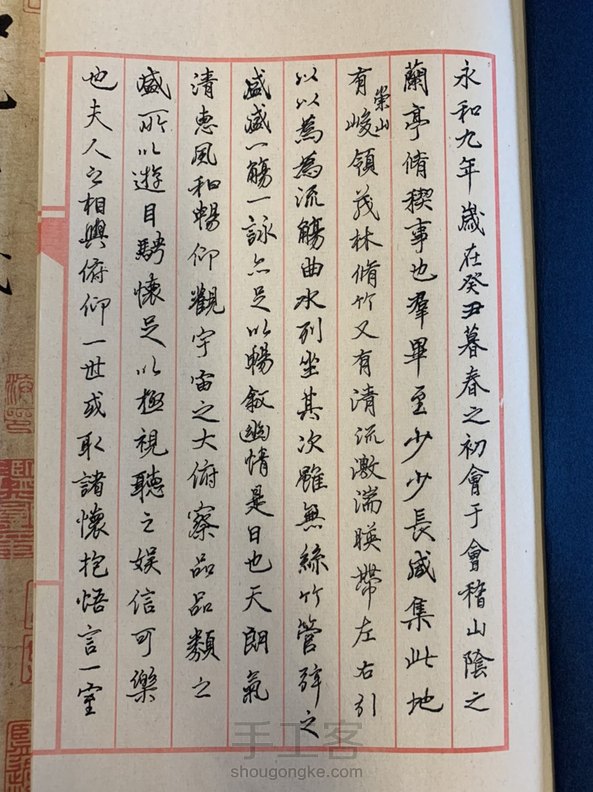 永和九年歲在癸丑暮春之初會于會稽山陰之
蘭亭脩稧事也羣畢至少少長咸集此地
有崇山峻領茂林脩竹又有清流激湍暎帶左右引
以以為為流觴曲水列坐其次雖無絲竹管弦之
盛盛一觴一詠亦足以暢敘幽情是日也天朗氣
清惠風和暢仰觀宇宙之大俯察品品類之
盛所以遊目騁懷足以極視聽之娛信可樂
也夫人之相與俯仰一世或取諸懷抱悟言一室
手工客
shougongke.com